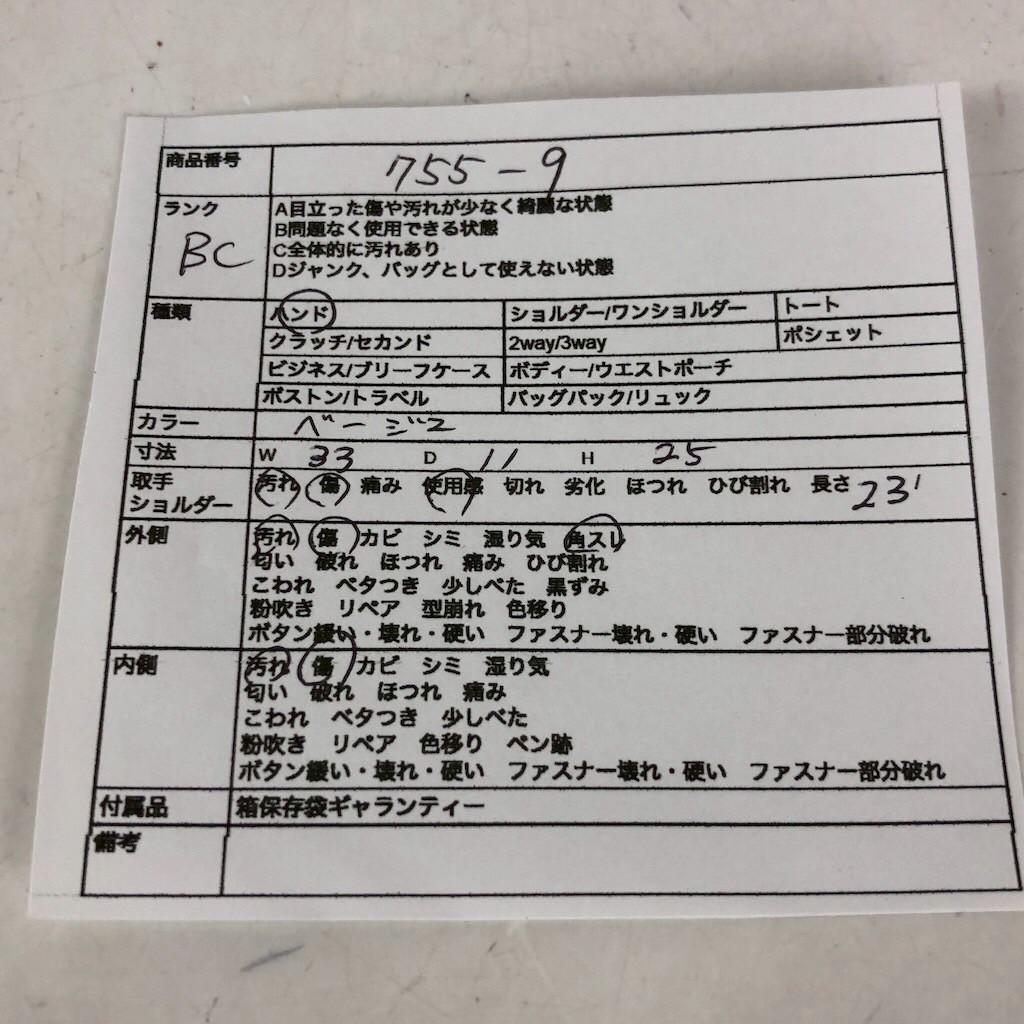 商品番号 755-9
ランク BC
A目立った傷や汚れが少なく綺麗な状態
B問題なく使用できる状態
C全体的に汚れあり
Dジャンク、バッグとして使えない状態
種類 ハンド ショルダー/ワンショルダー トート
クラッチ/セカンド 2way/3way ポシェット
ビジネス/ブリーフケース ボディー/ウエストポーチ
ボストン/トラベル バッグパック/リュック
カラー ベージュ
寸法 W 33 D 11 H 25
取手 汚れ 傷 痛み 使用感 切れ 劣化 ほつれ ひび割れ 長さ 23
ショルダー
外側 汚れ 傷 カビ シミ 湿り気 角スレ
匂い 破れ ほつれ 痛み ひび割れ
こわれ ベタつき 少しべた 黒ずみ
粉吹き リペア 型崩れ 色移り
ボタン緩い・壊れ・硬い ファスナー壊れ・硬い ファスナー部分破れ
内側 汚れ 傷 カビ シミ 湿り気
匂い 破れ ほつれ 痛み
こわれ ベタつき 少しべた
粉吹き リペア 色移り ペン跡
ボタン緩い・壊れ・硬い ファスナー壊れ・硬い ファスナー部分破れ
付属品 箱保存袋ギャランティー
備考